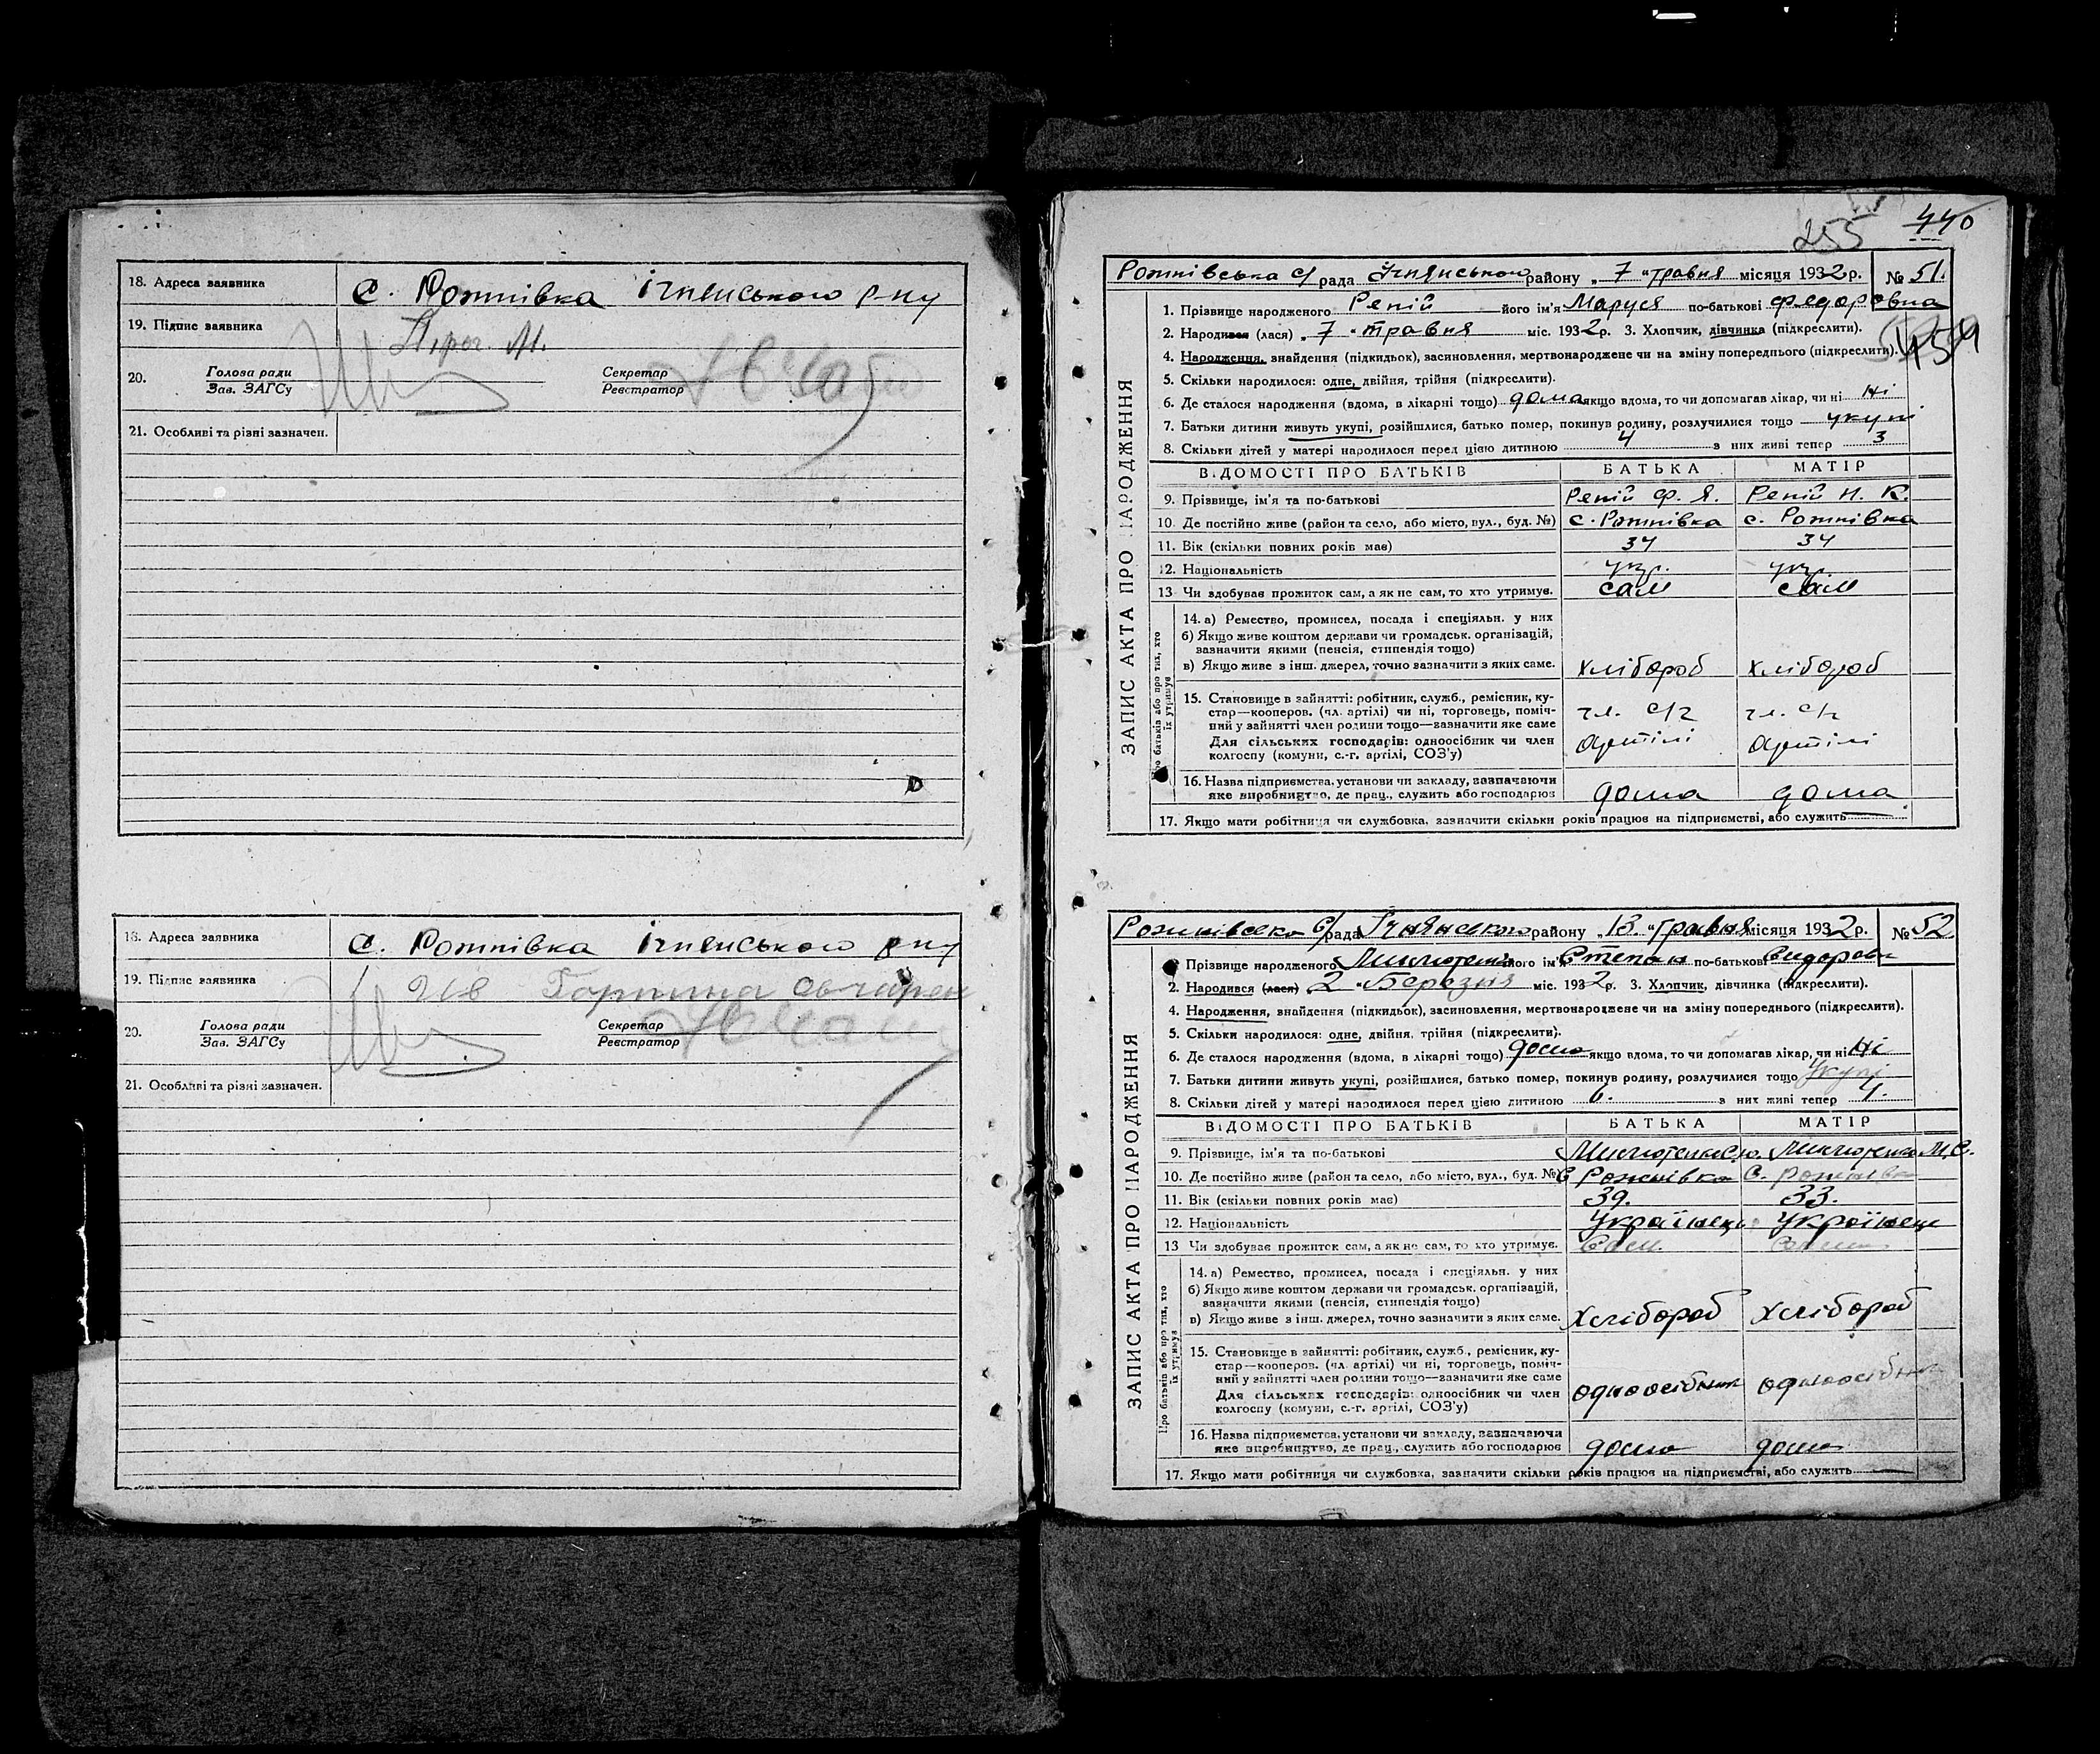 18. Адреса заявника с. Рожнівка Ічнянського р-ну
19. Підпис заявника
20. Голова ради Зав. ЗАГСу Секретар Реєстратор
21. Особливі та різні зазначен.
18. Адреса заявника с. Рожнівка Ічнянського р-ну
19. Підпис заявника Горпина
20. Голова ради Зав. ЗАГСу Секретар Реєстратор
21. Особливі та різні зазначен.
255 440
Рожнівська с/рада Ічнянського району „7" травня місяця 1932 р. № 51.
1. Прізвище народженого Репій його ім'я Маруся по-батькові Федоровна
2. Народився (лася) „7" травня міс. 1932 р. 3. Хлопчик, дівчинка (підкреслити).
4. Народження, знайдення (підкидьок), засиновлення, мертвонароджене чи на зміну попереднього (підкреслити).
459
5. Скільки народилося: одне, двійня, трійня (підкреслити).
6. Де сталося народження (вдома, в лікарні тощо) дома якщо вдома, то чи допомагав лікар, чи ні Ні
7. Батьки дитини живуть укупі, розійшлися, батько помер, покинув родину, розлучилися тощо укупі
8. Скільки дітей у матері народилося перед цією дитиною 4 з них живі тепер 3
ВІДОМОСТІ ПРО БАТЬКІВ БАТЬКА МАТІР
9. Прізвище, ім'я та по-батькові Репій Ф. Я. Репій Н. К.
10. Де постійно живе (район та село, або місто, вул., буд. №) с. Рожнівка с. Рожнівка
11. Вік (скільки повних років має) 34 34
12. Національність укр. укр.
13 Чи здобуває прожиток сам, а як не сам, то хто утримує. сам сам
14. а) Ремество, промисел, посада і спеціяльн. у них
б) Якщо живе коштом держави чи громадськ. організацій,
зазначити якими (пенсія, стипендія тощо)
в) Якщо живе з інш. джерел, точно зазначити з яких саме. хлібороб хлібороб
15. Становище в зайнятті: робітник, служб., ремісник, ку-
стар—кооперов. (чл. артілі) чи ні, торговець, поміч-
ний у зайнятті член родини тощо—зазначити яке саме чл. с/г чл. с/г
Для сільських господарів: одноосібник чи член артілі артілі
колгоспу (комуни, с.-г. артілі, СОЗ'у)
16. Назва підприємства, установи чи закладу, зазначаючи
яке виробництво, де прац., служить або господарює дома дома
17. Якщо мати робітниця чи службовка, зазначити скільки років працює на підприємстві, або служить
ЗАПИС АКТА ПРО НАРОДЖЕННЯ
Про батьків або про тих, хто їх утримує
Рожнівська с/рада Ічнянського району „13" травня місяця 1932 р. № 52
1. Прізвище народженого його ім'я Степан по-батькові
2. Народився (лася) 2 „Березня міс. 1932 р. 3. Хлопчик, дівчинка (підкреслити).
4. Народження, знайдення (підкидьок), засиновлення, мертвонароджене чи на зміну попереднього (підкреслити).
5. Скільки народилося: одне, двійня, трійня (підкреслити).
6. Де сталося народження (вдома, в лікарні тощо) дома якщо вдома, то чи допомагав лікар, чи ні Ні
7. Батьки дитини живуть укупі, розійшлися, батько помер, покинув родину, розлучилися тощо Укупі
8. Скільки дітей у матері народилося перед цією дитиною 6. з них живі тепер 4.
ВІДОМОСТІ ПРО БАТЬКІВ БАТЬКА МАТІР
9. Прізвище, ім'я та по-батькові М.С.
10. Де постійно живе (район та село, або місто, вул., буд. №) с Рожнівка с. Рожнівка
11. Вік (скільки повних років має) 39. 33.
12. Національність Українець Українець
13 Чи здобуває прожиток сам, а як не сам, то хто утримує. Сам.
14. а) Ремество, промисел, посада і спеціяльн. у них
б) Якщо живе коштом держави чи громадськ. організацій,
зазначити якими (пенсія, стипендія тощо)
в) Якщо живе з інш. джерел, точно зазначити з яких саме. Хлібороб Хлібороб
15. Становище в зайнятті: робітник, служб., ремісник, ку-
стар—кооперов. (чл. артілі) чи ні, торговець, поміч-
ний у зайнятті член родини тощо—зазначити яке саме
Для сільських господарів: одноосібник чи член одноосібник одноосібник
колгоспу (комуни, с.-г. артілі, СОЗ'у)
16. Назва підприємства, установи чи закладу, зазначаючи
яке виробництво, де прац., служить або господарює дома дома
17. Якщо мати робітниця чи службовка, зазначити скільки років працює на підприємстві, або служить
ЗАПИС АКТА ПРО НАРОДЖЕННЯ
Про батьків або про тих, хто їх утримує